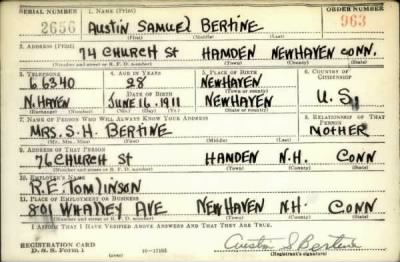 SERIAL NUMBER 1. NAME (Print) ORDER NUMBER
2656 AUSTIN SAMUEL BERTINE 963
(First) (Middle) (Last)
2. ADDRESS (Print)
74 CHURCH St HAMDEN NEWHAVEN CONN.
(Number and street or R. F. D. number) (Town) (County) (State)
3. TELEPHONE 4. AGE IN YEARS 5. PLACE OF BIRTH 6. COUNTRY OF CITIZENSHIP
6 6340 28 NEWHAVEN
DATE OF BIRTH (Town or county)
N. HAVEN JUNE 16, 1911 NEWHAVEN U.S.
(Exchange) (Number) (Mo.) (Day) (Yr.) (State or country)
7. NAME OF PERSON WHO WILL ALWAYS KNOW YOUR ADDRESS 8. RELATIONSHIP OF THAT PERSON
MRS. S. H. BERTINE MOTHER
(Mr., Mrs., Miss) (First) (Middle) (Last)
9. ADDRESS OF THAT PERSON
76 CHURCH St HANDEN N.H. CONN
(Number and street or R. F. D. number) (Town) (County) (State)
10. EMPLOYER'S NAME
R.E. TOMLINSON
11. PLACE OF EMPLOYMENT OR BUSINESS
801 WHALLEY AVE NEWHAVEN N.H. CONN
(Number and street or R. F. D. number) (Town) (County) (State)
I AFFIRM THAT I HAVE VERIFIED ABOVE ANSWERS AND THAT THEY ARE TRUE.
REGISTRATION CARD
D. S. S. FORM 1 Austin S Bertine
(over) (Registrant's signature)